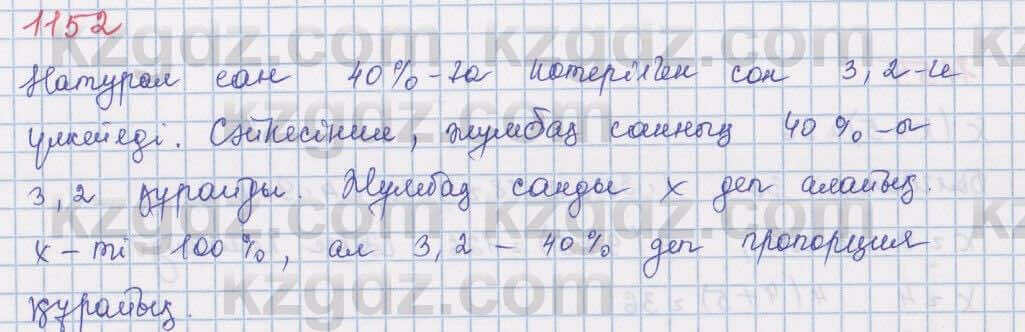 1152
Натурал сан 40%-ға көтерілген сон 3,2-ге
үлкейеді. Сәйкесінше, жұмбақ санның 40%-ы
3,2 құрайды. Жұмбақ санды х деп алайық.
х-ті - 100%, ал 3,2 - 40% деп пропорция
құрайық.